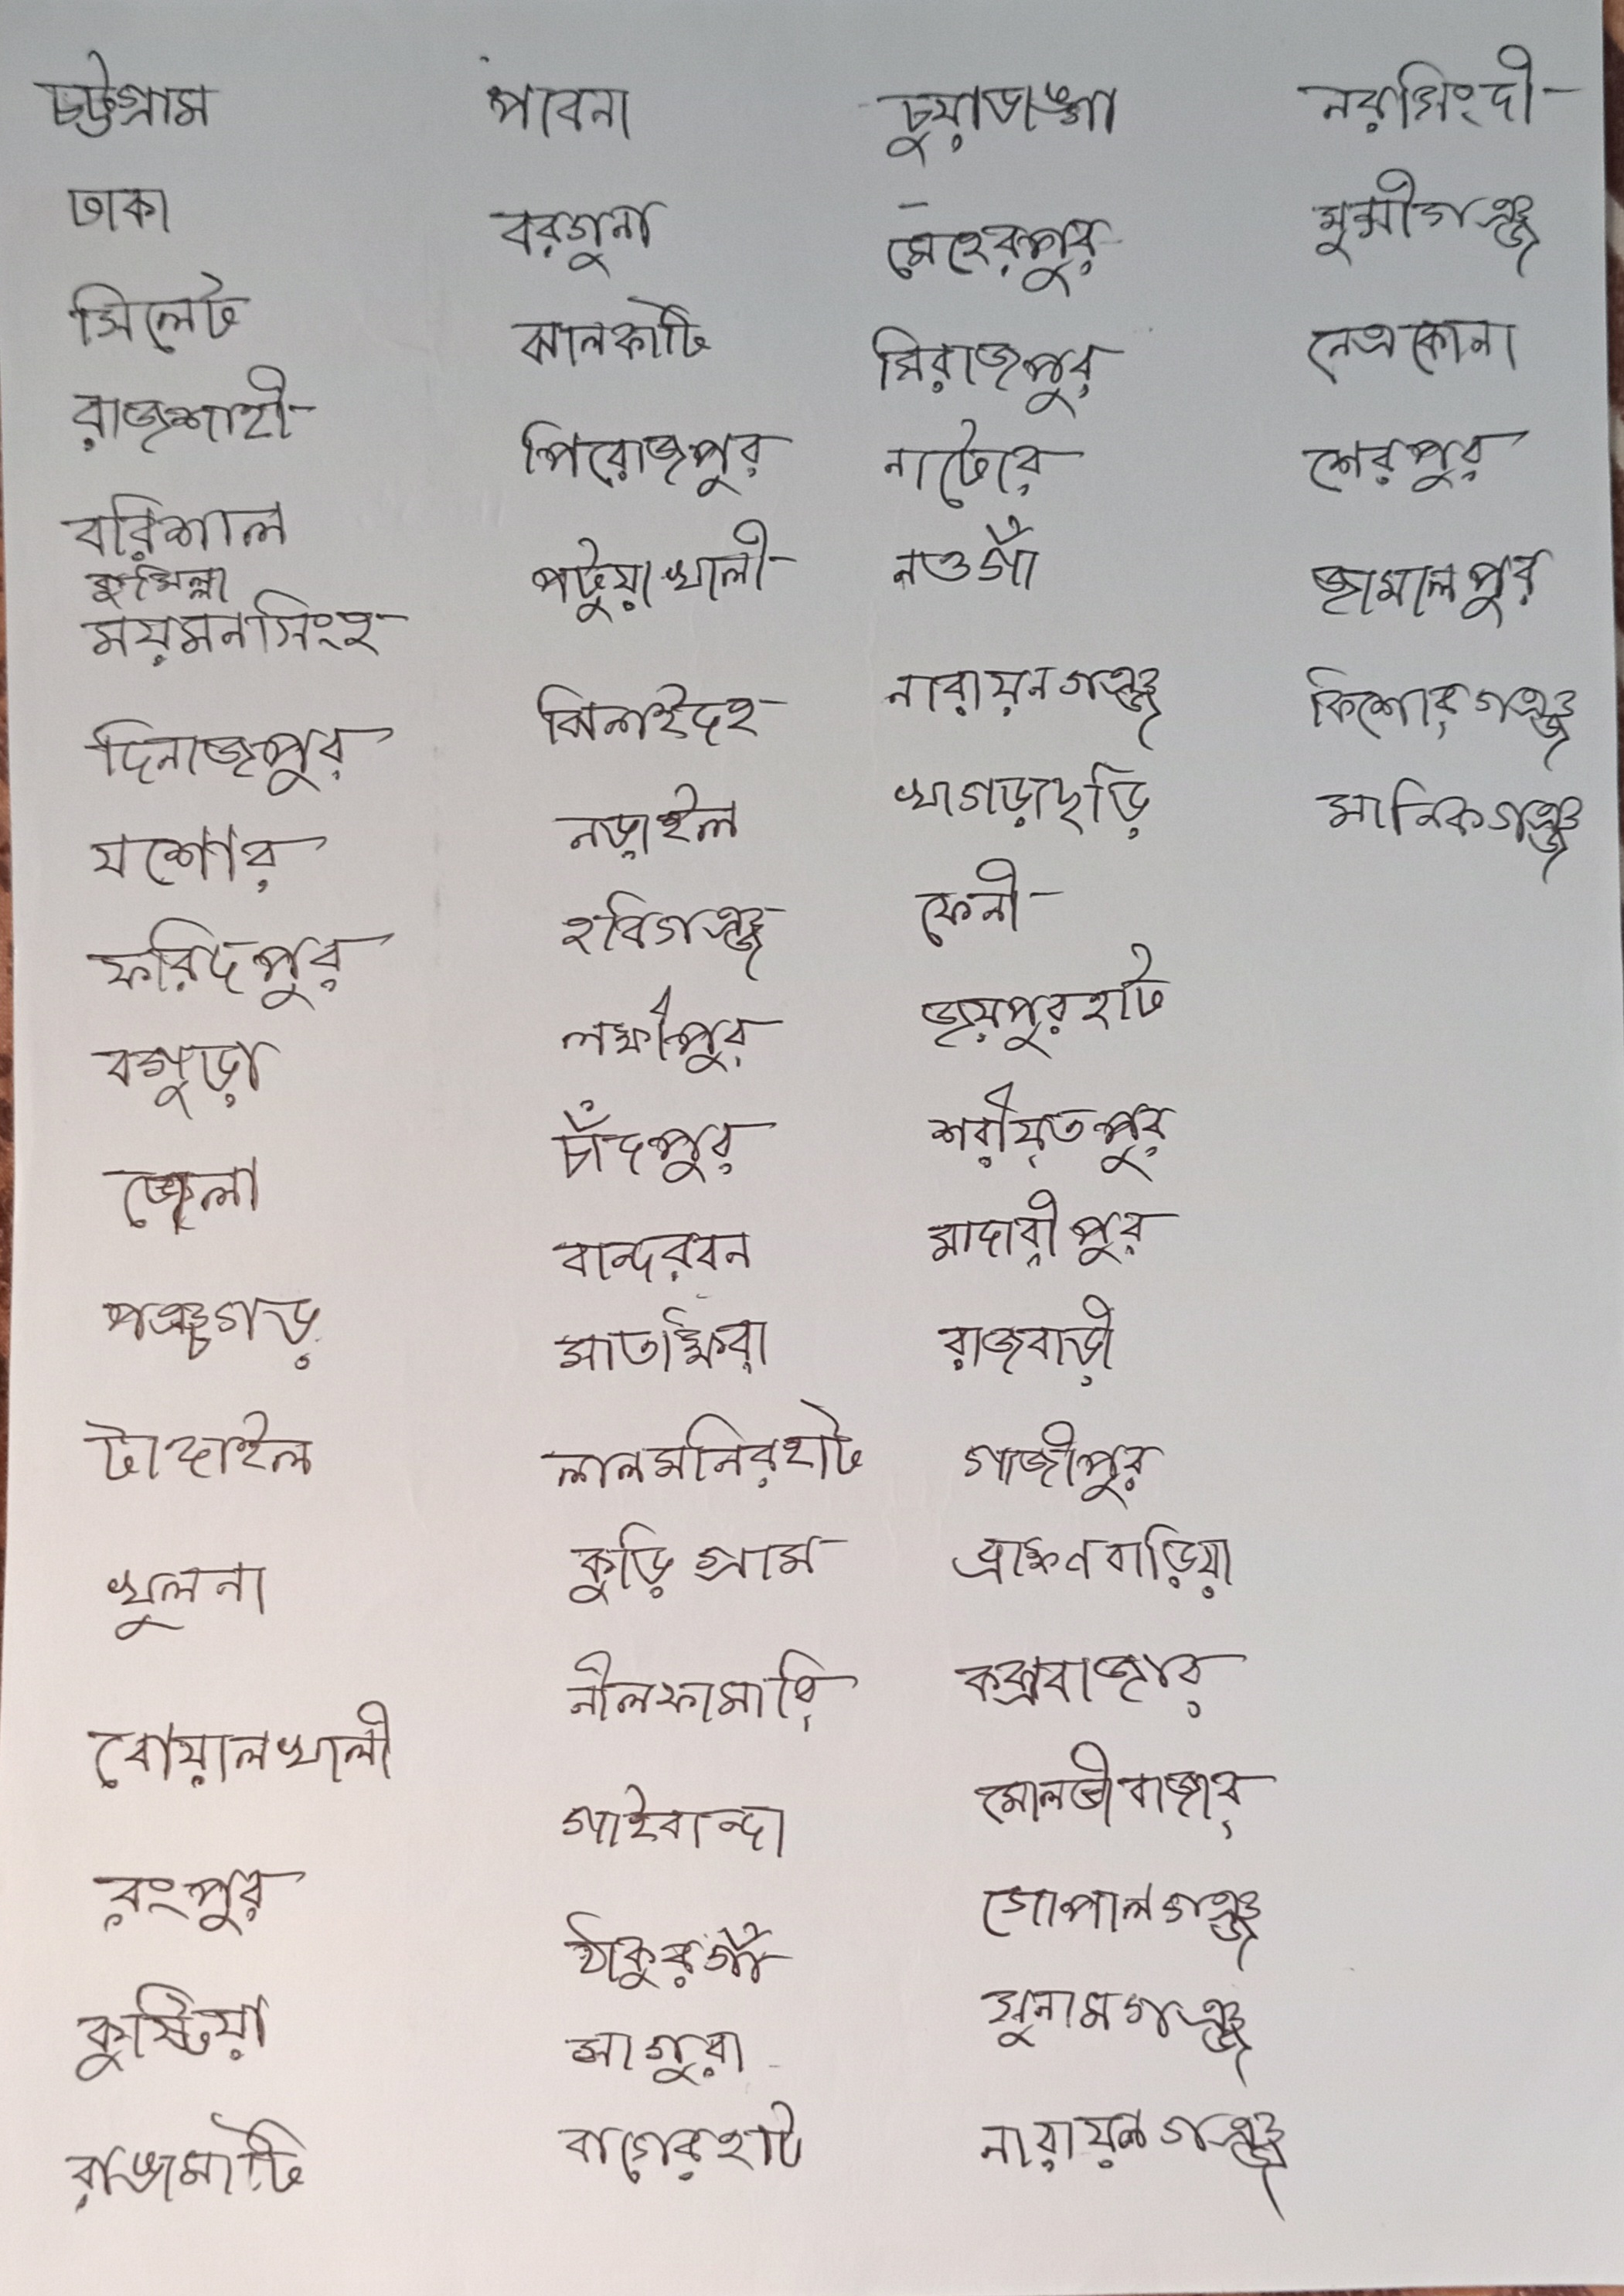 চট্টগ্রাম
ঢাকা
সিলেট
রাজশাহী
বরিশাল
কুমিল্লা
ময়মনসিংহ
দিনাজপুর
যশোর
ফরিদপুর
বগুড়া
জেলা
পঞ্চগড়
টাঙ্গাইল
খুলনা
বোয়ালখালী
রংপুর
কুষ্টিয়া
রাঙ্গামাটি
পাবনা
বরগুনা
ঝালকাটি
পিরোজপুর
পটুয়াখালী
ঝিনাইদহ
নড়াইল
হবিগঞ্জ
লক্ষীপুর
চাঁদপুর
বান্দরবন
সাতক্ষিরা
লালমনিরহাট
কুড়িগ্রাম
নীলফামারি
গাইবান্দা
ঠাকুরগাঁ
মাগুরা
বাগেরহাট
চুয়াডাঙ্গা
মেহেরপুর
সিরাজপুর
নাটোর
নওগাঁ
নারায়নগঞ্জ
খাগড়াছড়ি
ফেনী
জয়পুরহাট
শরীয়তপুর
মাদারীপুর
রাজবাড়ী
গাজীপুর
ব্রাক্ষণবাড়িয়া
কক্সবাজার
মোলভীবাজার
গোপালগঞ্জ
সুনামগঞ্জ
নারায়নগঞ্জ
নরসিংদী
মুন্সীগঞ্জ
নেত্রকোনা
শেরপুর
জামালপুর
কিশোরগঞ্জ
মানিকগঞ্জ